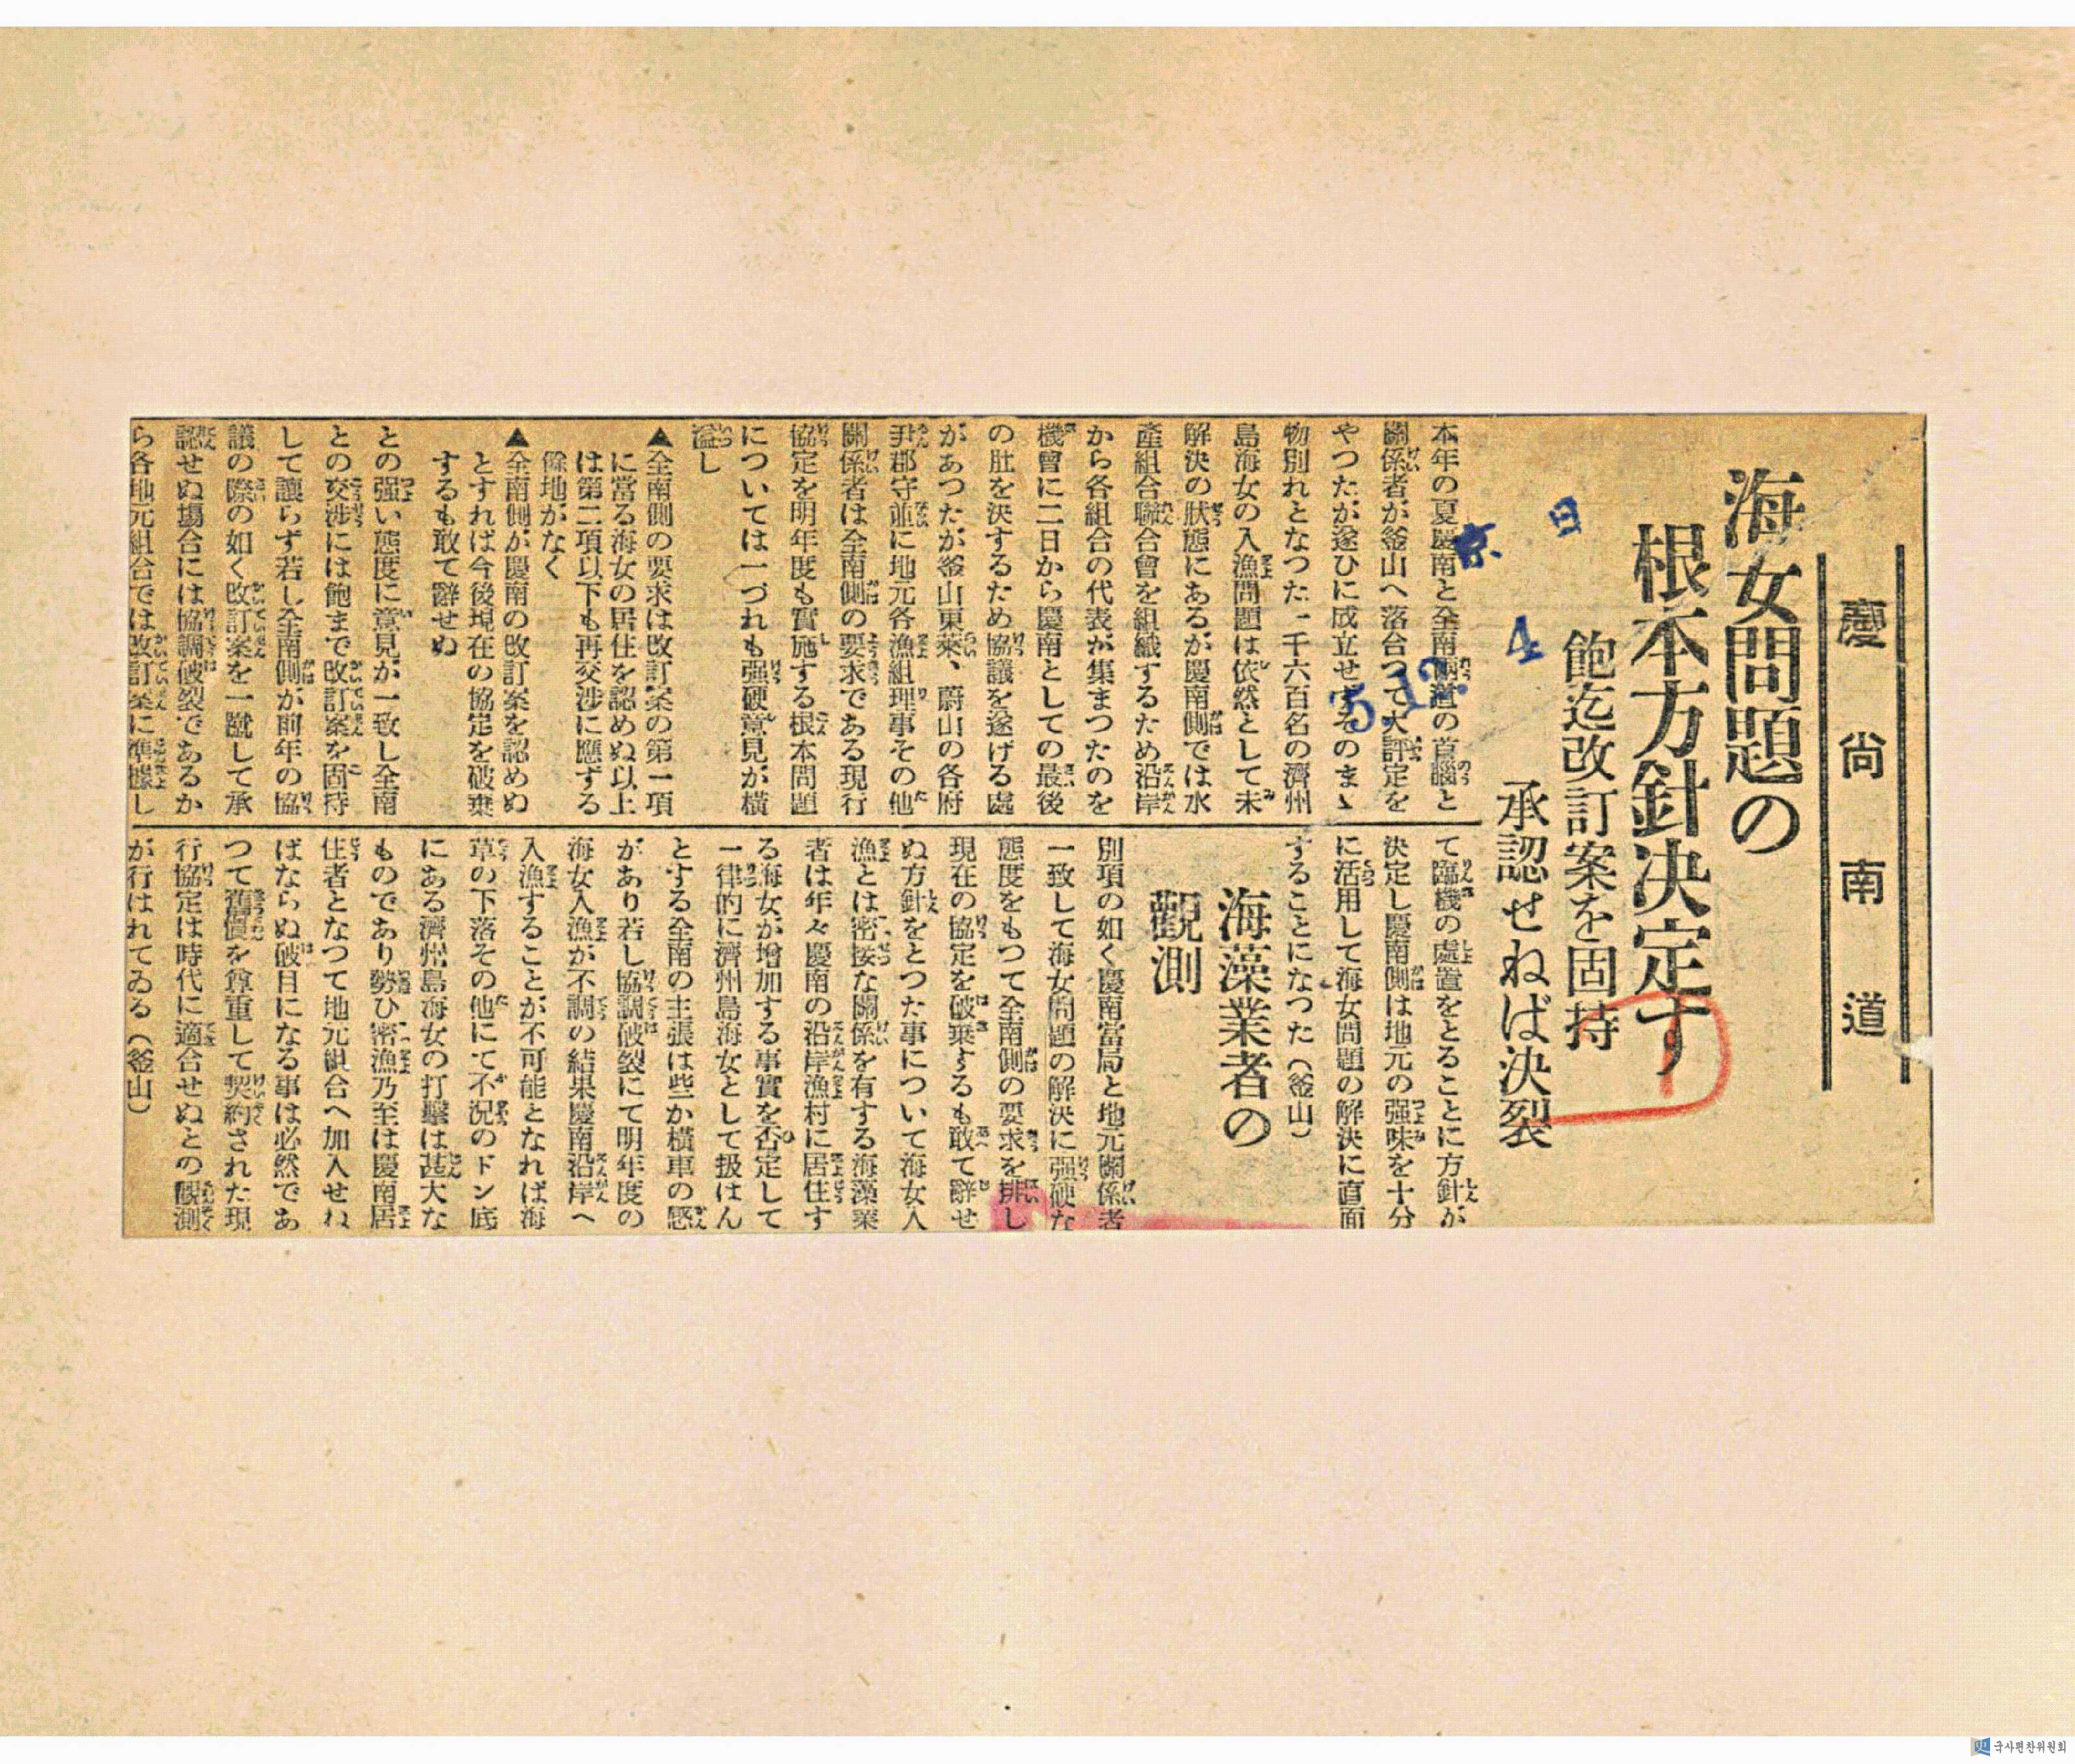 慶尚南道
海女問題の
根本方針決定す
飽迄改訂案を固持
承認せねば決裂
京日
4
5.12
本年の夏慶南と全南兩道の首腦と
關係者が釜山へ落合つて大評定を
やつたが遂ひに成立せずそのまゝ
物別れとなつた一千六百名の濟州
島海女の入漁問題は依然として未
解決の狀態にあるが慶南側では水
產組合聯合會を組織するため沿岸
から各組合の代表が集まつたのを
機會に二日から慶南としての最後
の肚を決するため協議を遂げる處
があつたが釜山東萊、蔚山の各府
尹郡守並に地元各漁組理事その他
關係者は全南側の要求である現行
協定を明年度も實施する根本問題
については一づれも强硬意見が橫
溢し
▲全南側の要求は改訂案の第一項
に當る海女の居住を認めぬ以上
は第二項以下も再交涉に應ずる
餘地がなく
▲全南側が慶南の改訂案を認めぬ
とすれば今後現在の協定を破棄
するも敢て辭せぬ
との强い態度に意見が一致し全南
との交涉には飽まで改訂案を固持
して讓らず若し全南側が前年の協
議の際の如く改訂案を一蹴して承
認せぬ場合には協調破裂であるか
ら各地元組合では改訂案に準據し
て臨機の處置をとることに方針が
決定し慶南側は地元の强味を十分
に活用して海女問題の解決に直面
することになつた（釜山）
海藻業者の
觀測
別項の如く慶南當局と地元關係者
一致して海女問題の解決に强硬な
態度をもつて全南側の要求を排し
現在の協定を破棄するも敢て辭せ
ぬ方針をとつた事について海女入
漁とは密接な關係を有する海藻業
者は年々慶南の沿岸漁村に居住す
る海女が增加する事實を否定して
一律的に濟州島海女として扱はん
とする全南の主張は些か橫車の感
があり若し協調破裂にて明年度の
海女入漁が不調の結果慶南沿岸へ
入漁することが不可能となれば海
草の下落その他にて不況のドン底
にある濟州島海女の打擊は甚大な
ものであり勢ひ密漁乃至は慶南居
住者となつて地元組合へ加入せね
ばならぬ破目になる事は必然であ
つて舊慣を尊重して契約された現
行協定は時代に適合せぬとの觀測
が行はれてゐる（釜山）
국사편찬위원회